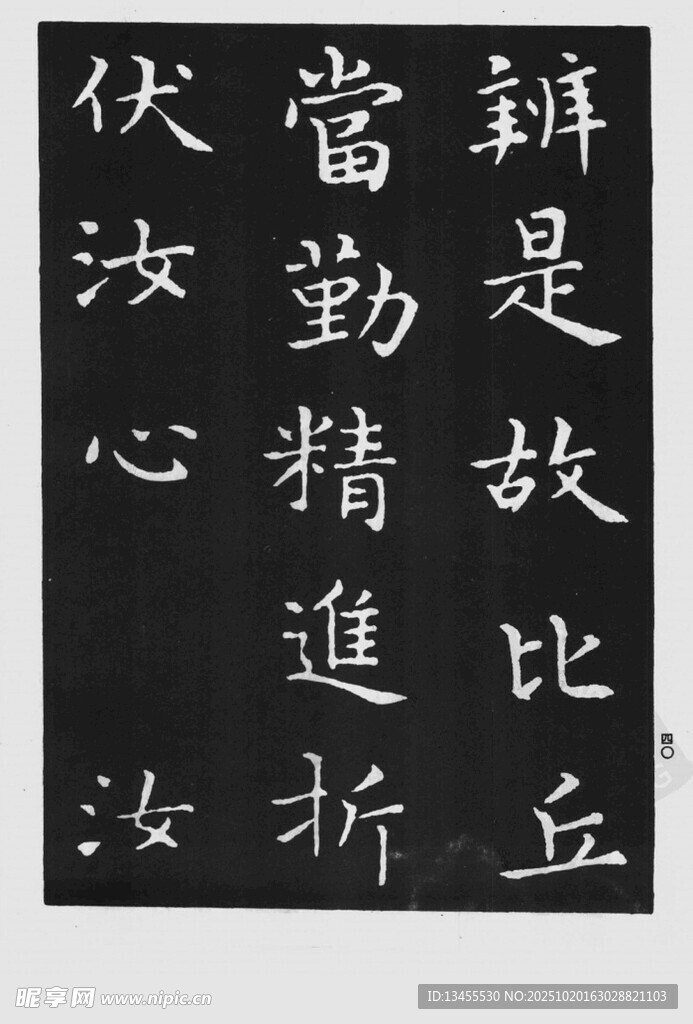 辨是故比丘
當勤精進折
伏汝心 汝
四〇
昵享网 www.nipic.cn
ID:13455530 NO:20251020163028821103